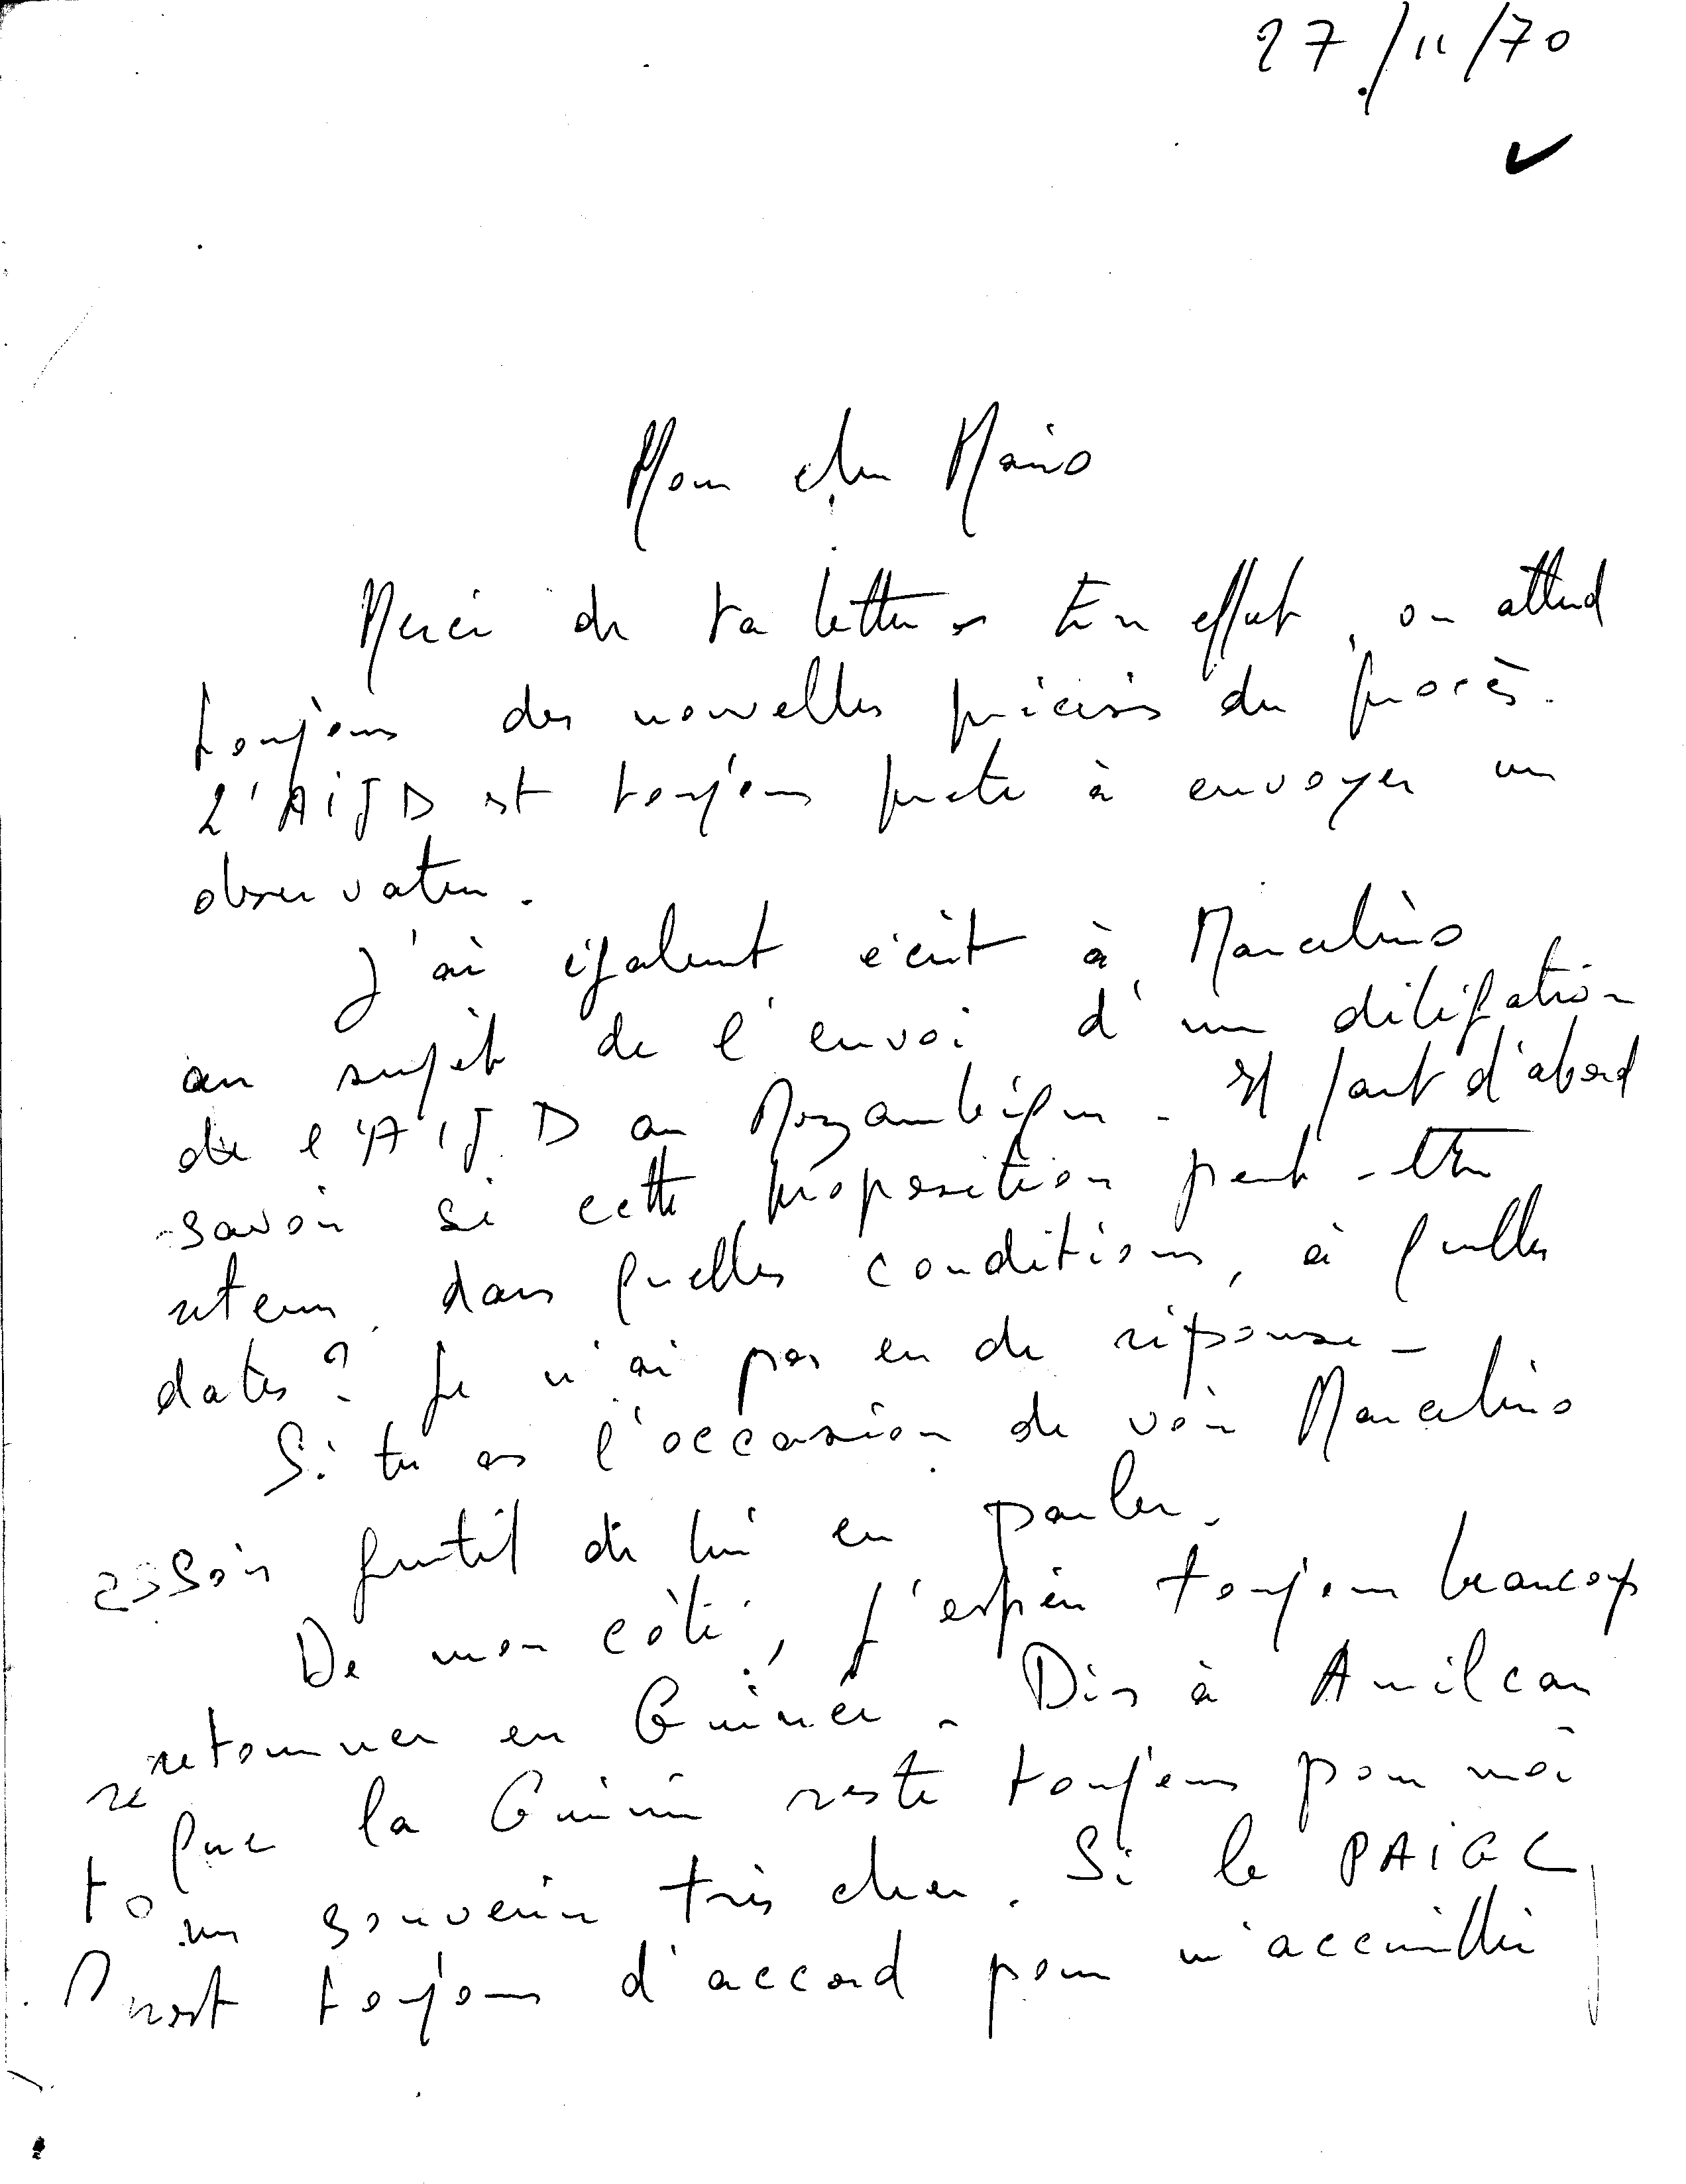 27/11/70
Mon cher Mario
Merci de ta lettre. En effet, on attend
toujours des nouvelles précises du procès.
L'AIJD est toujours prête à envoyer un
observateur.
J'ai également écrit à Marcelino
au sujet de l'envoi d'une délégation
de l'AIJD au Mozambique - Il faut d'abord
savoir si cette proposition peut-être
retenue, dans quelles conditions, à quelles
dates? Je n'ai pas eu de réponse -
Si tu as l'occasion de voir Marcelino
gentil de lui en parler.
De mon côté, j'espère toujours beaucoup
retourner en Guinée. Dis à Amilcar
que la Guinée reste toujours pour moi
un souvenir très cher. Si le PAIGC
est toujours d'accord pour m'accueillir